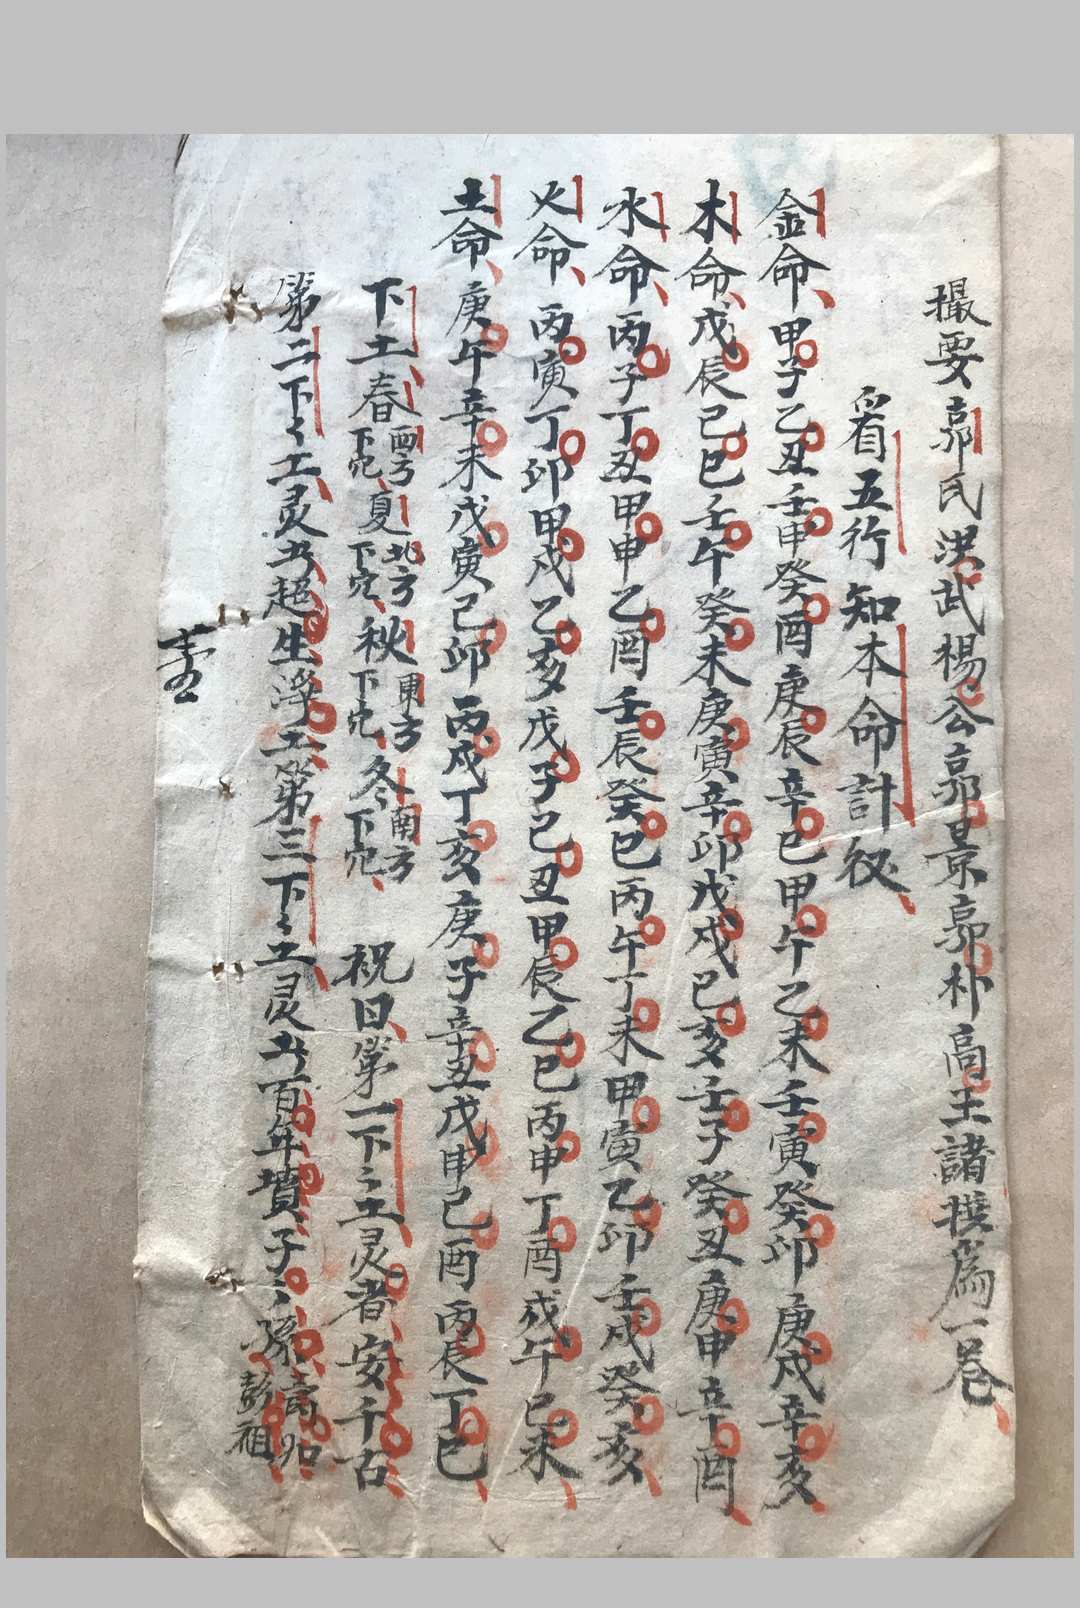 撮要郭氏洪武楊公郭景郭朴高王諸撰為一卷
看五行知本命計仪
金命甲子乙丑壬申癸酉庚辰辛巳甲午乙未壬寅癸卯庚戌辛亥
木命戊辰己巳壬午癸未庚寅辛卯戊戌己亥壬子癸丑庚申辛酉
水命丙子丁丑甲申乙酉壬辰癸巳丙午丁未甲寅乙卯壬戌癸亥
火命丙寅丁卯甲戌乙亥戊子己丑甲辰乙巳丙申丁酉戊午己未
土命庚午辛未戊寅己卯丙戌丁亥庚子辛丑戊申己酉丙辰丁巳
下土春西方下穴夏北方下穴秋東方下穴冬南方下穴 祝曰第一下〻土灵者安千古
第二下〻土灵古超生浮土第三下〻土灵古百年墳子〻孫高如彭祖